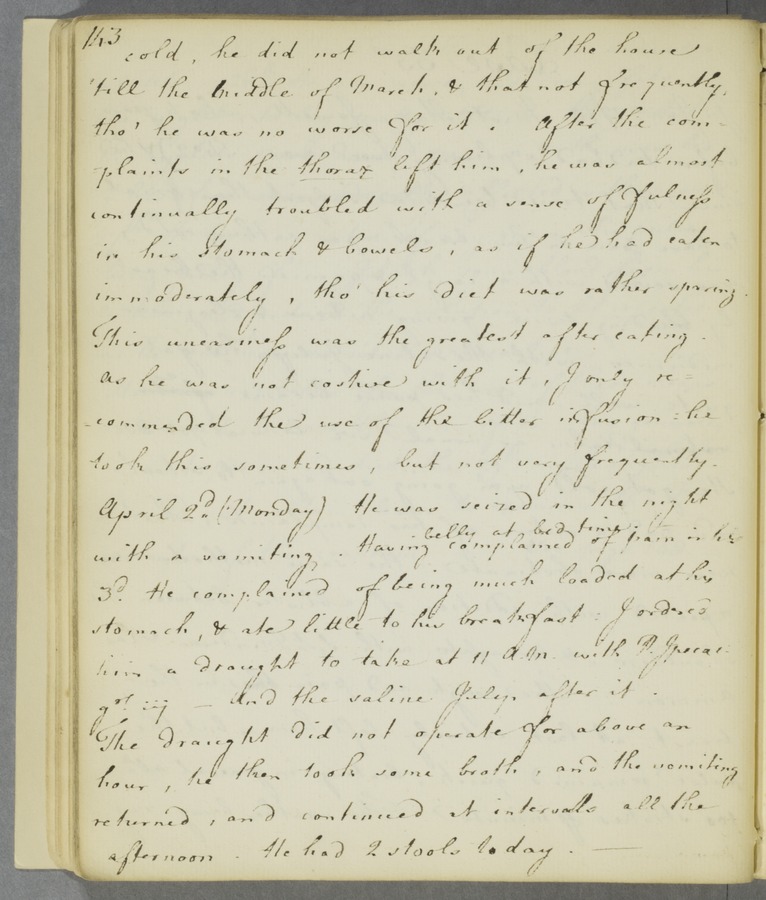 143
cold, he did not walk out of the house
'till the middle of March, & that not frequently,
tho' he was no worse for it. After the com-
-plaints in the thorax left him, he was almost
continually troubled with a sense of fulness
in his stomach & bowels, as if he had eaten
immoderately, tho' his diet was rather sparing.
This uneasiness was the greatest after eating.
As he was not costive with it, I only re=
-commended the use of the bitter infusion: he
took this sometimes, but not very frequently.
April 2d. (Monday) He was seized in the night
belly at bed time.
with a vomiting. Having complained of pain in his
3d. He complained of being much loaded at his
stomach, & ate little to his breakfast: I ordered
him a draught to take at 11 A.M. with P. Ipecac.
grs. iij — and the saline Julep. after it.
The draught did not operate for above an
hour, he then took some broth, and the vomiting
returned, and continued at intervals all the
afternoon. He had 2 stools to day. —